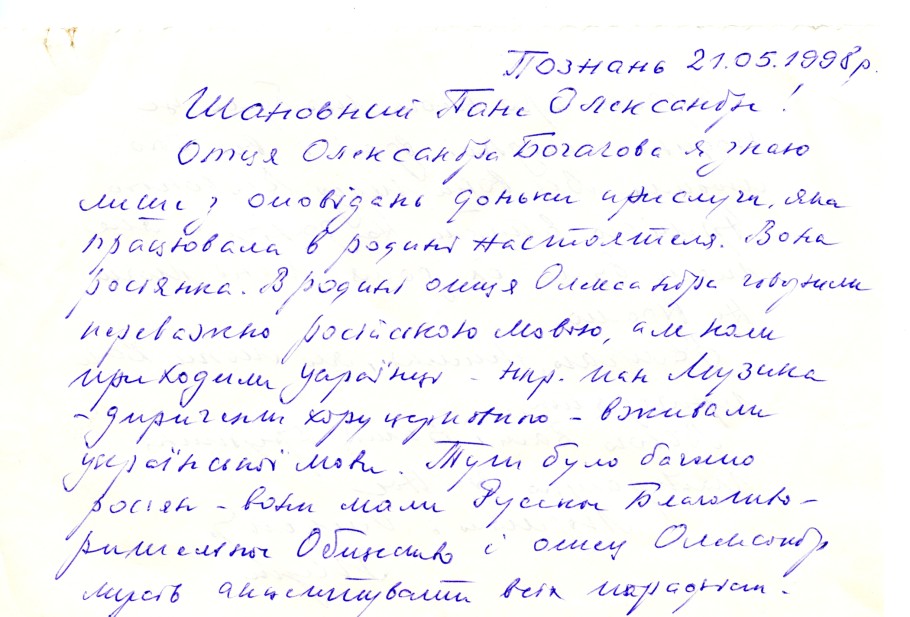 Познань 21.05.1998р.
Шановний Пане Олександре!
Отця Олександра Богачова я знаю
лише з оповідань доньки прислуги, яка
працювала в родині настоятеля. Вона
росіянка. В родині отця Олександра говорили
переважно російською мовою, але коли
приходили українці – нпр. пан Музика
– диригент хору церковного – вживали
української мови. Тут було багато
росіян – вони мали Русское Благотво-
рительное Общество і отец Олександр
мусів всіх